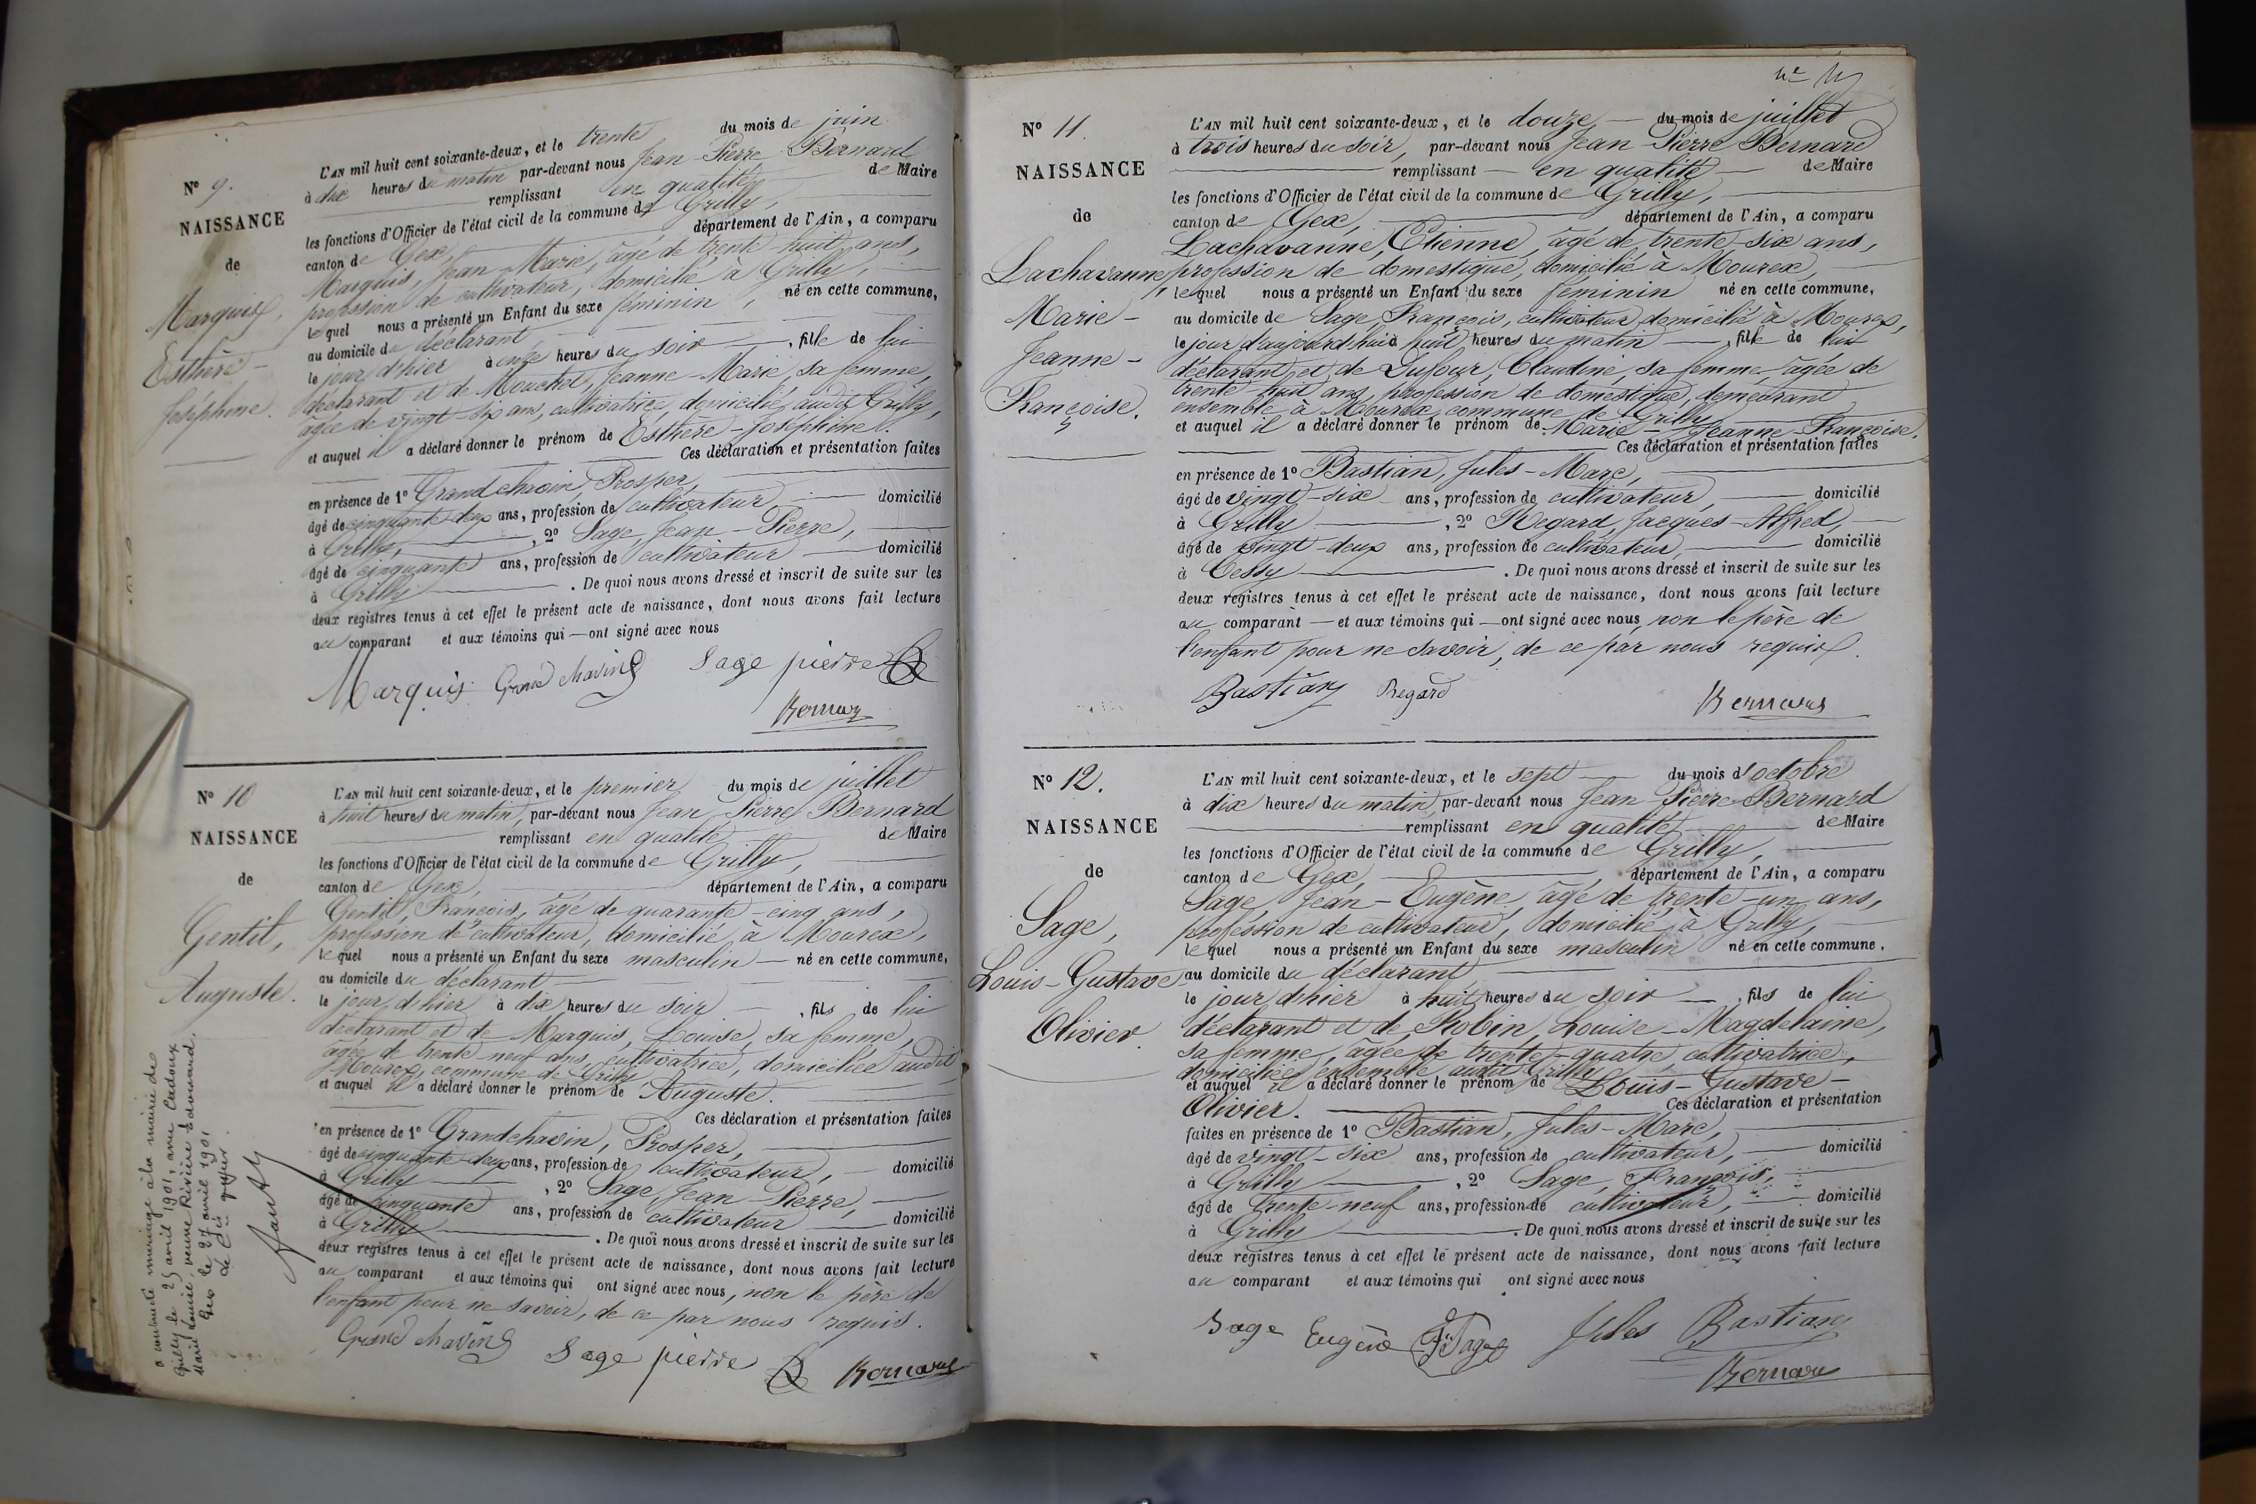 N° 9.
NAISSANCE
de
Marquis,
Esthère-
Joséphine.
L'AN mil huit cent soixante-deux, et le trente du mois de juin
à dix heures du matin par-devant nous Jean-Pierre Bernard
remplissant en qualité de Maire
les fonctions d'Officier de l'état civil de la commune de Grilly,
canton de Gex, département de l'Ain, a comparu
Marquis, Jean-Marie, âgé de trente-huit ans,
profession de cultivateur, domicilié à Grilly,
lequel nous a présenté un Enfant du sexe féminin, né en cette commune,
au domicile du déclarant
le jour d'hier à onze heures du soir, fille de lui
déclarant et de Mouchet, Jeanne-Marie, sa femme,
âgée de vingt-six ans, cultivatrice, domicilié audit Grilly,
et auquel il a déclaré donner le prénom de Esthère-Joséphine.
Ces déclaration et présentation faites
en présence de 1° Grandchavin, Prosper,
âgé de cinquante-deux ans, profession de cultivateur domicilié
à Grilly, 2° Sage, Jean-Pierre,
âgé de cinquante ans, profession de cultivateur domicilié
à Grilly. De quoi nous avons dressé et inscrit de suite sur les
deux registres tenus à cet effet le présent acte de naissance, dont nous avons fait lecture
au comparant et aux témoins qui — ont signé avec nous
Marquis Grand chavin Sage pierre
Bernard
N° 10
NAISSANCE
de
Gentil,
Auguste.
L'AN mil huit cent soixante-deux, et le premier du mois de juillet
à huit heures du matin, par-devant nous Jean-Pierre Bernard
remplissant en qualité de Maire
les fonctions d'Officier de l'état civil de la commune de Grilly,
canton de Gex, département de l'Ain, a comparu
Gentil, François, âgé de quarante-cinq ans,
profession de cultivateur, domicilié à Mourex,
lequel nous a présenté un Enfant du sexe masculin — né en cette commune,
au domicile du déclarant
le jour d'hier à dix heures du soir, fils de lui
déclarant et de Marquis, Louise, sa femme,
âgée de trente-neuf ans, cultivatrice, domiciliée audit
Mourex, commune de Grilly
et auquel il a déclaré donner le prénom de Auguste.
Ces déclaration et présentation faites
en présence de 1° Grandchavin, Prosper,
âgé de cinquante-deux ans, profession de cultivateur, domicilié
à Grilly, 2° Sage, Jean-Pierre,
âgé de cinquante ans, profession de cultivateur domicilié
à Grilly. De quoi nous avons dressé et inscrit de suite sur les
deux registres tenus à cet effet le présent acte de naissance, dont nous avons fait lecture
au comparant et aux témoins qui ont signé avec nous, non le père de
l'enfant pour ne savoir, de ce par nous requis.
Grand chavin Sage pierre Bernard
a contracté mariage à la mairie de
Grilly le 25 avril 1901, avec Cadoux
Marie Louise, veuve Rivière Edouard
Gex le 27 avril 1901
Le greffier
N° 11.
NAISSANCE
de
Lachavanne,
Marie-
Jeanne-
Françoise.
L'AN mil huit cent soixante-deux, et le douze — du mois de juillet
à trois heures du soir, par-devant nous Jean-Pierre Bernard
remplissant — en qualité — de Maire
les fonctions d'Officier de l'état civil de la commune de Grilly,
canton de Gex, département de l'Ain, a comparu
Lachavanne, Etienne, âgé de trente-six ans,
profession de domestique, domicilié à Mourex,
lequel nous a présenté un Enfant du sexe féminin né en cette commune,
au domicile de Sage, François, cultivateur, domicilié à Mourex,
le jour d'aujourd'hui à huit heures du matin, fille de lui
déclarant et de Dufour, Claudine, sa femme, âgée de
trente-huit ans, profession de domestique, demeurant
ensemble à Mourex, commune de Grilly
et auquel il a déclaré donner le prénom de Marie-Jeanne-Françoise.
Ces déclaration et présentation faites
en présence de 1° Bastian, Jules-Marc,
âgé de vingt-six ans, profession de cultivateur, domicilié
à Grilly, 2° Regard, Jacques-Alfred,
âgé de vingt-deux ans, profession de cultivateur, domicilié
à Cessy. De quoi nous avons dressé et inscrit de suite sur les
deux registres tenus à cet effet le présent acte de naissance, dont nous avons fait lecture
au comparant — et aux témoins qui — ont signé avec nous, non le père de
l'enfant pour ne savoir, de ce par nous requis.
Bastian Regard Bernard
N° 12.
NAISSANCE
de
Sage,
Louis-Gustave
Olivier.
L'AN mil huit cent soixante-deux, et le sept du mois d'octobre
à dix heures du matin, par-devant nous Jean-Pierre Bernard
remplissant en qualité de Maire
les fonctions d'Officier de l'état civil de la commune de Grilly,
canton de Gex, département de l'Ain, a comparu
Sage, Jean-Eugène, âgé de trente-un ans,
profession de cultivateur, domicilié à Grilly,
lequel nous a présenté un Enfant du sexe masculin né en cette commune.
au domicile du déclarant
le jour d'hier à huit heures du soir, fils de lui
déclarant et de Robin, Louise-Magdelaine,
sa femme, âgée de trente-quatre, cultivatrice,
domiciliés ensemble audit Grilly
et auquel il a déclaré donner le prénom de Louis-Gustave-
Olivier. Ces déclaration et présentation
faites en présence de 1° Bastian, Jules-Marc,
âgé de vingt-six ans, profession de cultivateur, domicilié
à Grilly, 2° Sage, François,
âgé de trente-neuf ans, profession de cultivateur, domicilié
à Grilly. De quoi nous avons dressé et inscrit de suite sur les
deux registres tenus à cet effet le présent acte de naissance, dont nous avons fait lecture
au comparant et aux témoins qui ont signé avec nous
Sage Eugène Fs Sage Jules Bastian
Bernard